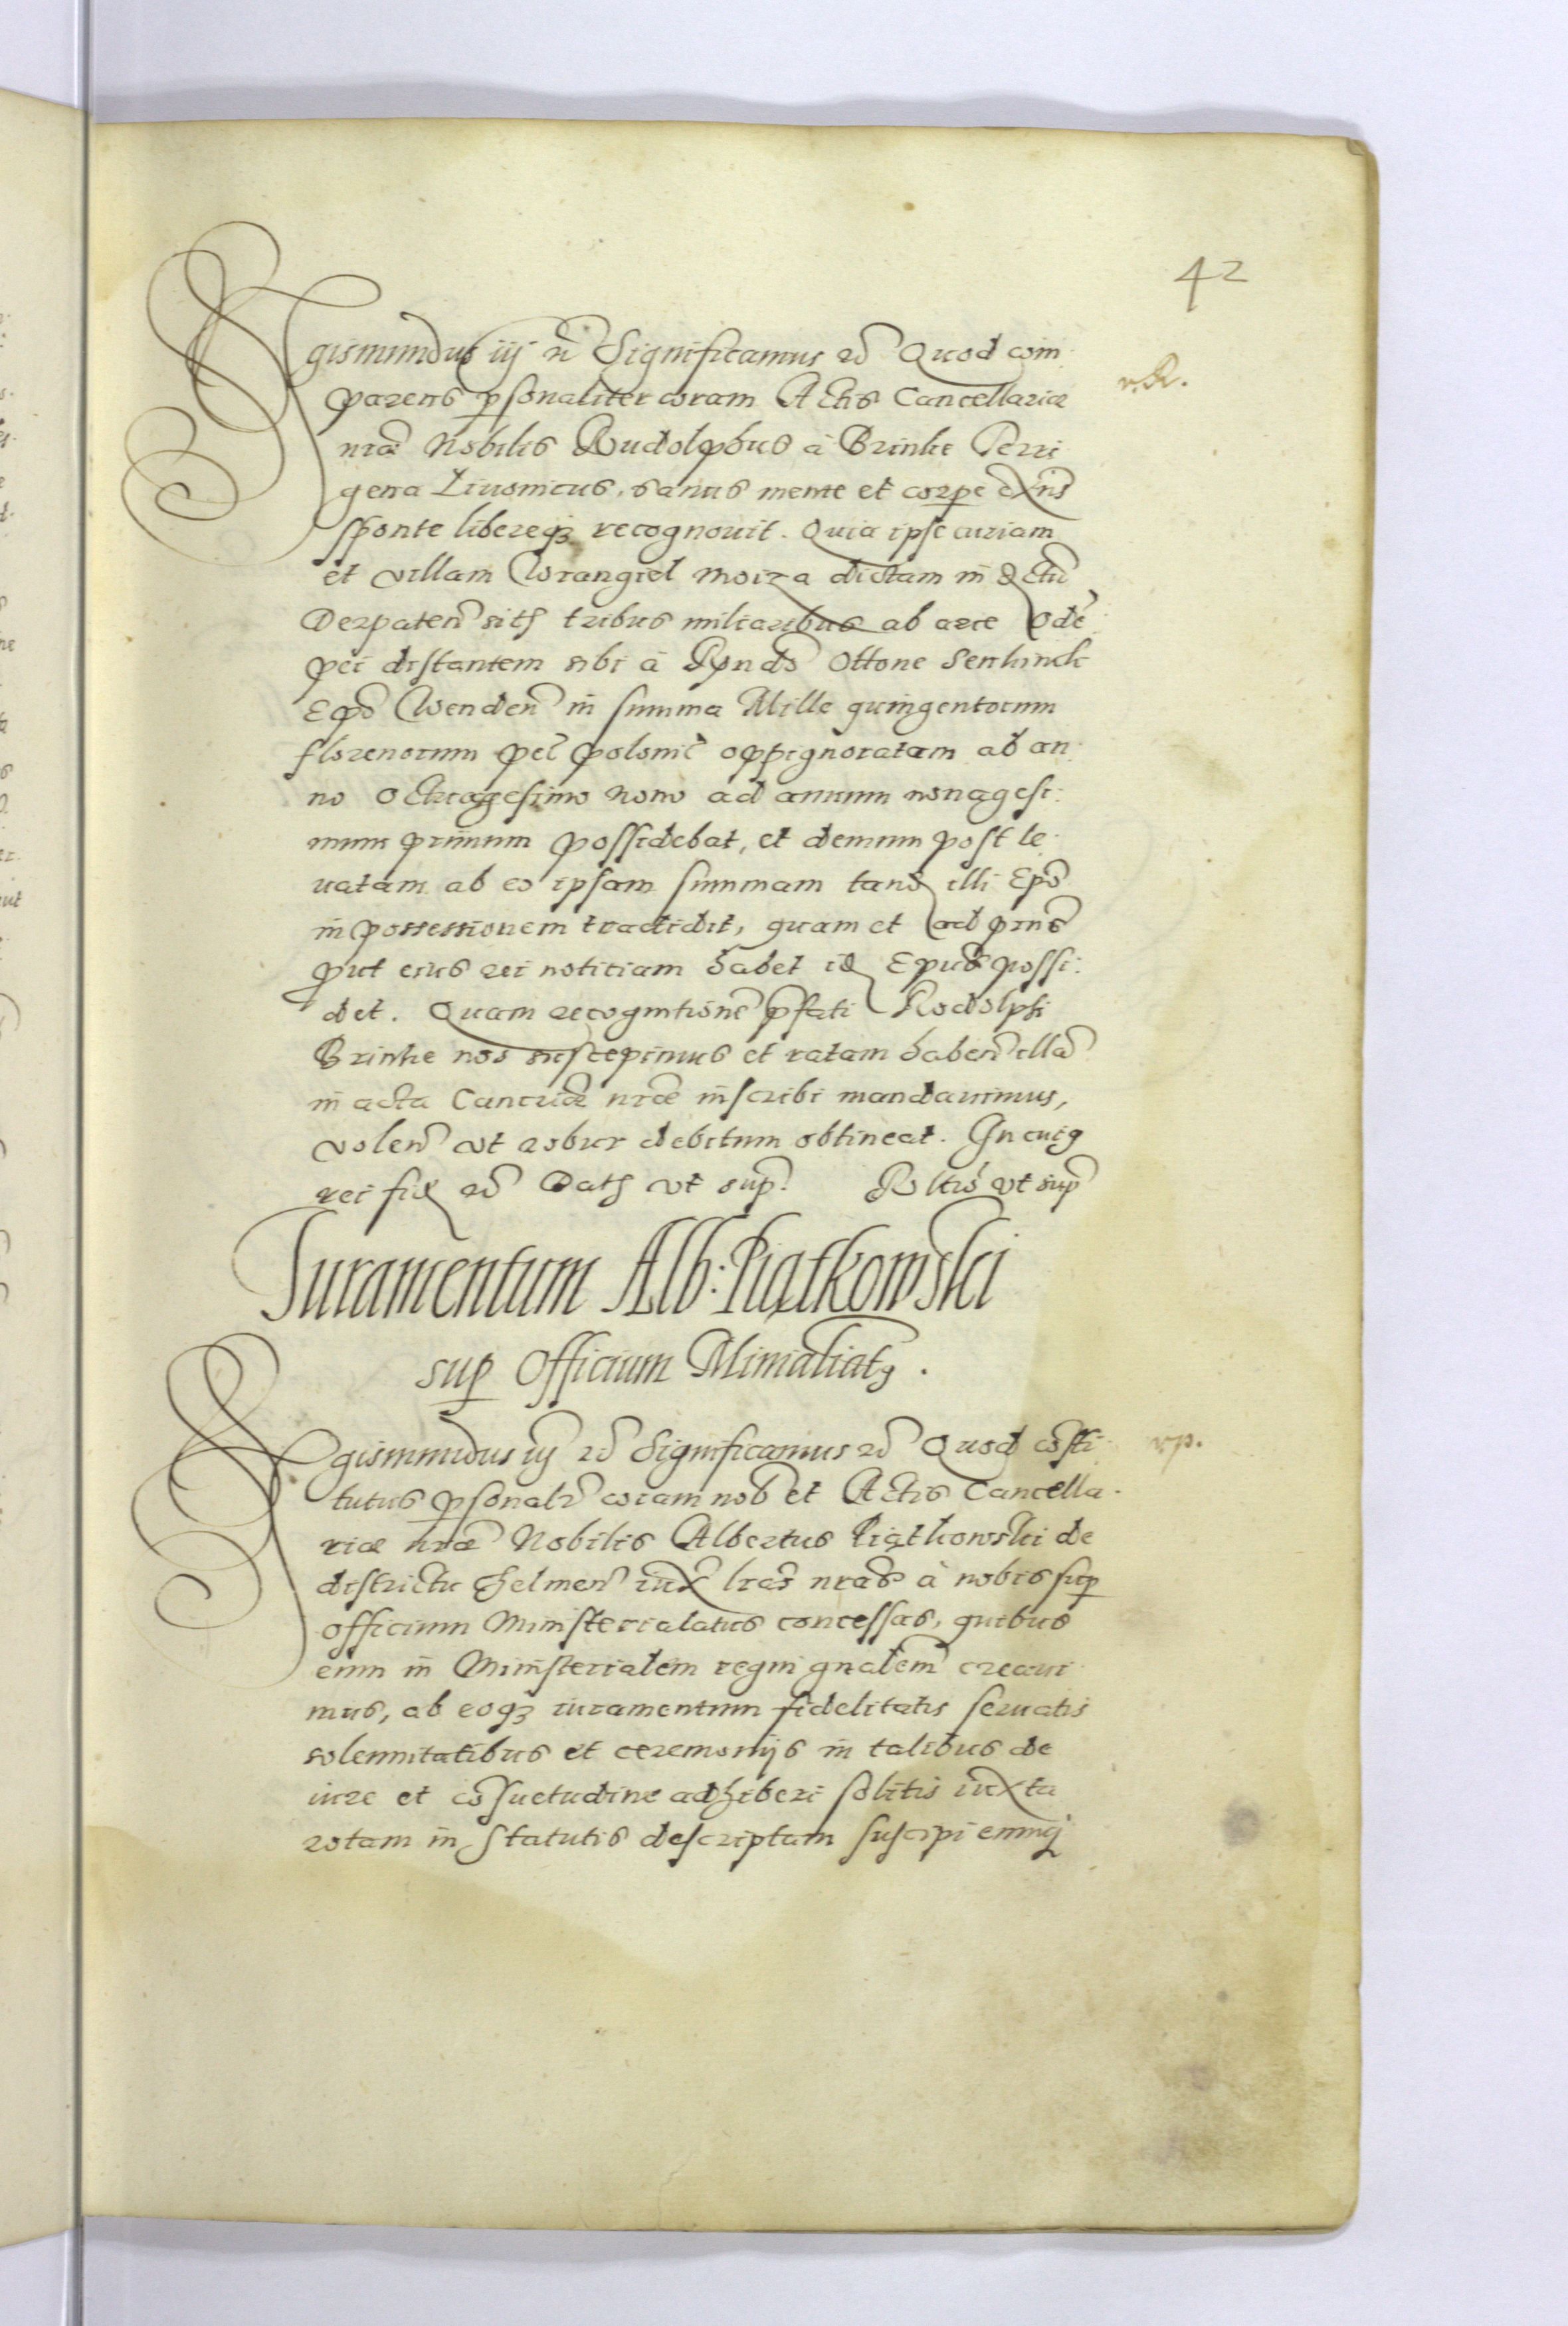 42
Sigismundus iij rc̃ Significamus rc̃ Quod com
parens psonaliter coram Actis Cancellariæ
nræ Nobilis Rudolphus à Brinke Terri
gena Liuonicus, sanus mente et corpe exñs
sponte libereqȝ recognouit. Quia ipse curiam
et villam Wrangiel Moiza dictam in dictũ
Derpateñ sitꝭ tribus miliaribus ab arce Ode
pei distantem sibi à Rñdo Ottone Senkinck
Epõ Wendeñ in summa Mille quingentorum
florenorum pec̃ polonic̃ oppignoratam ab an
no octuagesimo nono ad annum nonagesi:
mum primum possidebat, et demum post le
uatam ab eo ipsam summam tand illi Epõ
in possessionem tradidit, quam et ad prns̃
prout eius rei noticiam habet id Epus̃ possi:
det. Quam recognitionẽ p̃fati Rodolphi
Brinke nos suscepimus et ratam habeñ illã
in acta Cancriæ nræ inscribi mandauimus,
voleñ vt robur debitum obtineat. In cuiꝯ
rei fid rc̃ Datꝭ vt sup. Rltiõ vt sup
Juramentum Alb: Piątkowski
sup Officium Minĩaliatꝯ.
Sigismundus iij rc̃ Significamus rc̃ Quod cõsti
tutus psonalr̃ coram nob̃ et Actis Cancella
riæ nræ Nobilis Albertus Piątkowski de
districtu Chelmeñ iux̃ lras̃ nras̃ à nobis sup
officium Ministerialatus concessas, quibus
eum in Ministerialem regni gnalem̃ creaui
mus, ab eoqȝ iuramentum fidelitatis seruatis
solennitatibus et ceremonijs in talibus de
iure et cõsuetudine adhiberi solitis iuxta
rotam in statutis descriptam suscipi